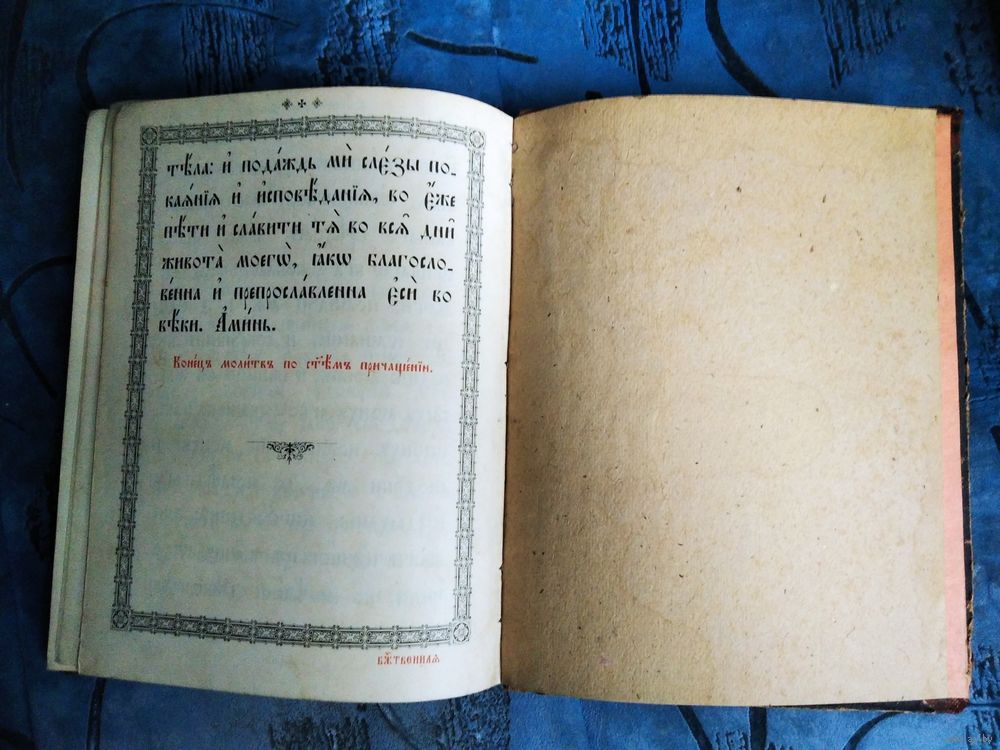 тѣ́ла: и҆ пода́ждь мѝ сле́зы по-
каѧ́нїѧ и҆ и҆сповѣ́данїѧ, во є҆́же
пѣ́ти и҆ сла́вити тѧ̀ во всѧ̑ дни̑
живота̀ моегѡ̀, ꙗ҆́кѡ благосло-
ве́нна и҆ препросла́вленна є҆сѝ во
вѣ́ки. А҆ми́нь.
Коне́цъ моли́твъ по ст҃ѣ́мъ причаще́нїи.
бж҃е́ственнаѧ